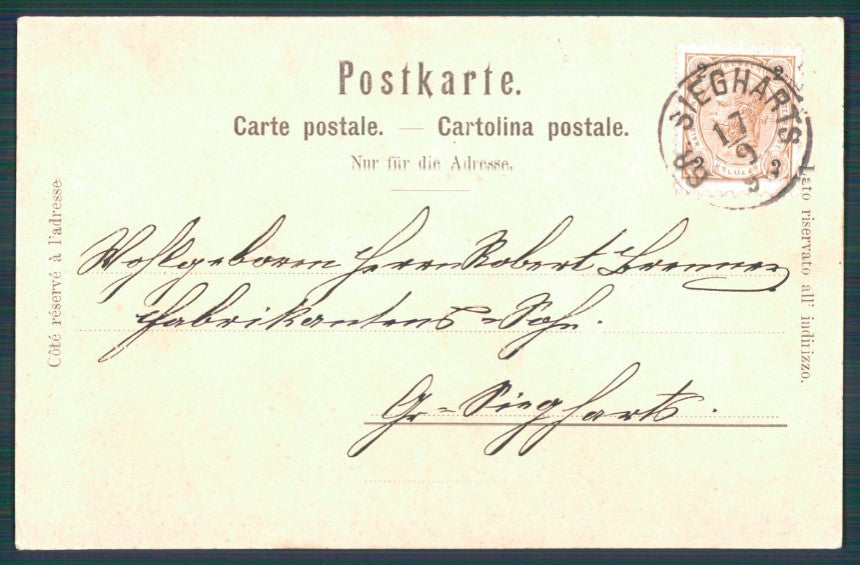 Postkarte.
Carte postale. — Cartolina postale.
Nur für die Adresse.
Côté réservé à l'adresse
Lato riservato all' indirizzo.
GR. SIEGHARTS
17/9
2 2
2 2
Wohlgeboren Herrn Robert Brenner
Fabrikantens-Sohn.
Gr=Siegharts.